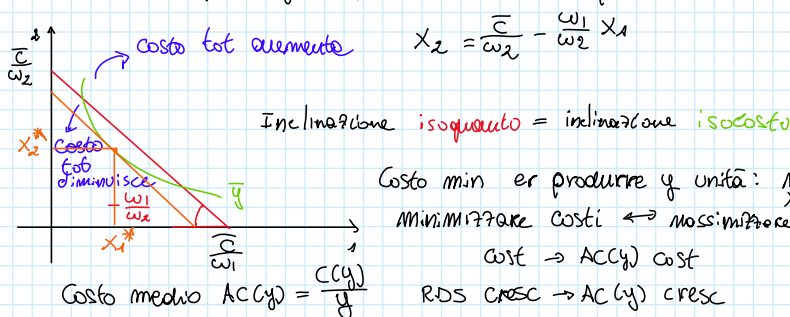 2
costo tot aumenta
X₂ = C̅/ω₂ - ω₁/ω₂ X₁
C̅/ω₂
Inclinazione isoquanto = inclinazione isocosto
X₂*
costo
tot
diminuisce
y̅
ω₁/ω₂
Costo min er produrre y unità:
minimizzare costi ↔ massimizzare
X₁*
C̅/ω₁
1
cost → AC(y) cost
Costo medio AC(y) = C(y)/y
RDS cresc → AC(y) cresc